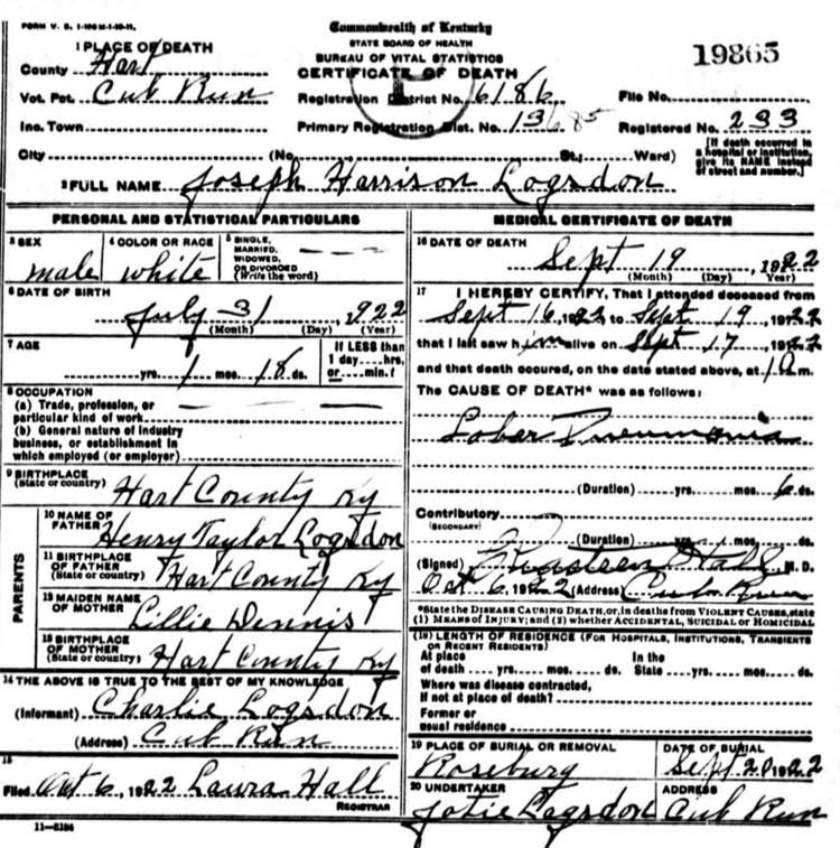 Commonwealth of Kentucky
STATE BOARD OF HEALTH
BUREAU OF VITAL STATISTICS
CERTIFICATE OF DEATH
19865
1 PLACE OF DEATH
County Hart
Vot. Pct. Cub Run
Registration District No. 6186
File No.
Inc. Town
Primary Registration Dist. No. 13685
Registered No. 233
City (No. St.; Ward)
[If death occurred in a hospital or institution, give its NAME instead of street and number.]
2 FULL NAME Joseph Harrison Logsdon
PERSONAL AND STATISTICAL PARTICULARS
3 SEX male
4 COLOR OR RACE white
5 SINGLE, MARRIED, WIDOWED, OR DIVORCED (Write the word)
6 DATE OF BIRTH
July 31, 922
(Month) (Day) (Year)
7 AGE
If LESS than 1 day....hrs. or....min.?
yrs. 1 mos. 18 ds.
8 OCCUPATION
(a) Trade, profession, or particular kind of work
(b) General nature of Industry business, or establishment in which employed (or employer)
9 BIRTHPLACE (State or country) Hart County Ky
PARENTS
10 NAME OF FATHER Henry Taylor Logsdon
11 BIRTHPLACE OF FATHER (State or country) Hart County Ky
12 MAIDEN NAME OF MOTHER Lillie Dennis
13 BIRTHPLACE OF MOTHER (State or country) Hart County Ky
14 THE ABOVE IS TRUE TO THE BEST OF MY KNOWLEDGE
(Informant) Charlie Logsdon
(Address) Cub Run
15
Filed Oct 6, 1922 Laura Hall
REGISTRAR
11-5184
MEDICAL CERTIFICATE OF DEATH
16 DATE OF DEATH
Sept 19, 1922
(Month) (Day) Year)
17 I HEREBY CERTIFY, That I attended deceased from
Sept 16, 1922 to Sept 19, 1922
that I last saw him alive on Sept 17, 1922
and that death occured, on the date stated above, at 1 a m.
The CAUSE OF DEATH* was as follows:
Lober Pneumonia
(Duration) yrs. mos. 6 ds.
Contributory
(SECONDARY)
(Duration) yrs. mos. ds.
(Signed) M. D.
Oct 6, 1922 (Address) Cub Run
*State the DISEASE CAUSING DEATH, or, in deaths from VIOLENT CAUSES, state
(1) MEANS OF INJURY; and (2) whether ACCIDENTAL, SUICIDAL or HOMICIDAL
(18) LENGTH OF RESIDENCE (FOR HOSPITALS, INSTITUTIONS, TRANSIENTS OR RECENT RESIDENTS)
At place of death yrs. mos. ds. In the State yrs. mos. ds.
Where was disease contracted,
If not at place of death?
Former or
usual residence
19 PLACE OF BURIAL OR REMOVAL Roseburg
DATE OF BURIAL Sept 20 1922
20 UNDERTAKER Jotie Logsdon
ADDRESS Cub Run